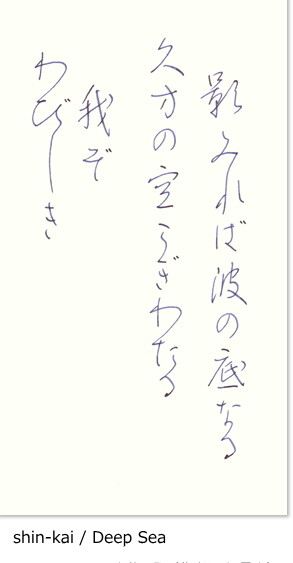 影みれば波の底なる
久方の空こぎわたる
我ぞ
わびしき
shin-kai / Deep Sea